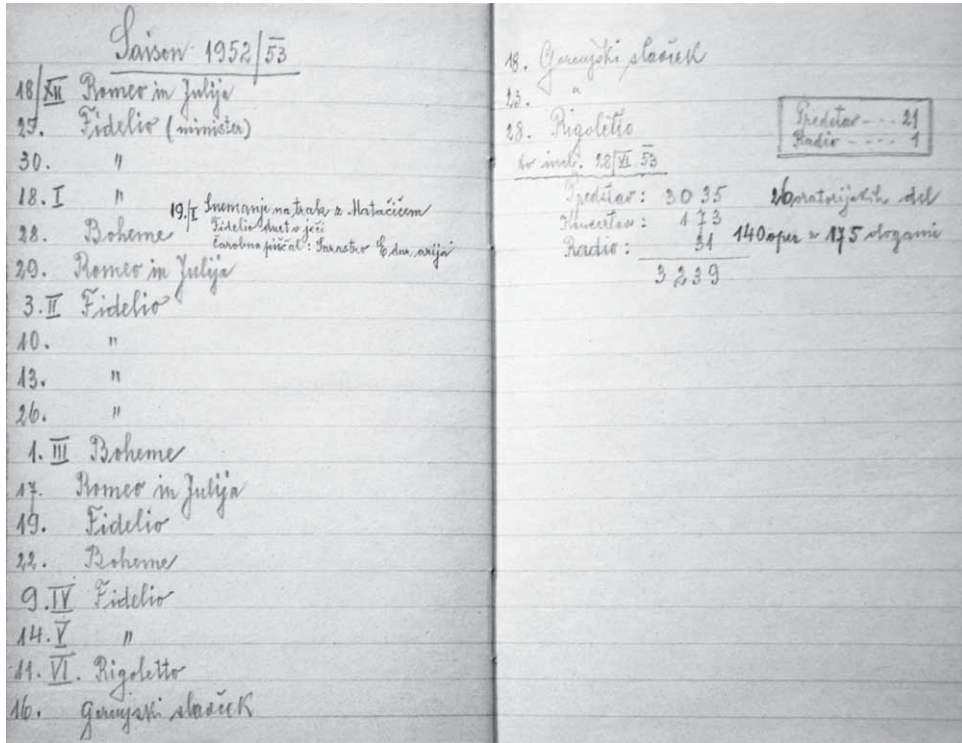 Saison 1952/53
18/XII Romeo in Julija
25. Fidelio (minister)
30. "
18. I "
19./I Snemanje na trak z Matačićem
Fidelio duet v ječi
Čarobna piščal: Sarastro E dur, arija
28. Boheme
29. Romeo in Julija
3. II Fidelio
10. "
13. "
26. "
1. III Boheme
17. Romeo in Julija
19. Fidelio
22. Boheme
9. IV Fidelio
14. V "
11. VI. Rigoletto
16. Gorenjski slavček
18. Gorenjski slavček
23. "
28. Rigoletto
Predstav --- 21
Radio ---- 1
28/XI 53
Predstav: 3035
Koncertov: 173
Radio: 31
3239
26 oratorijskih del
140 oper z 175 vlogami